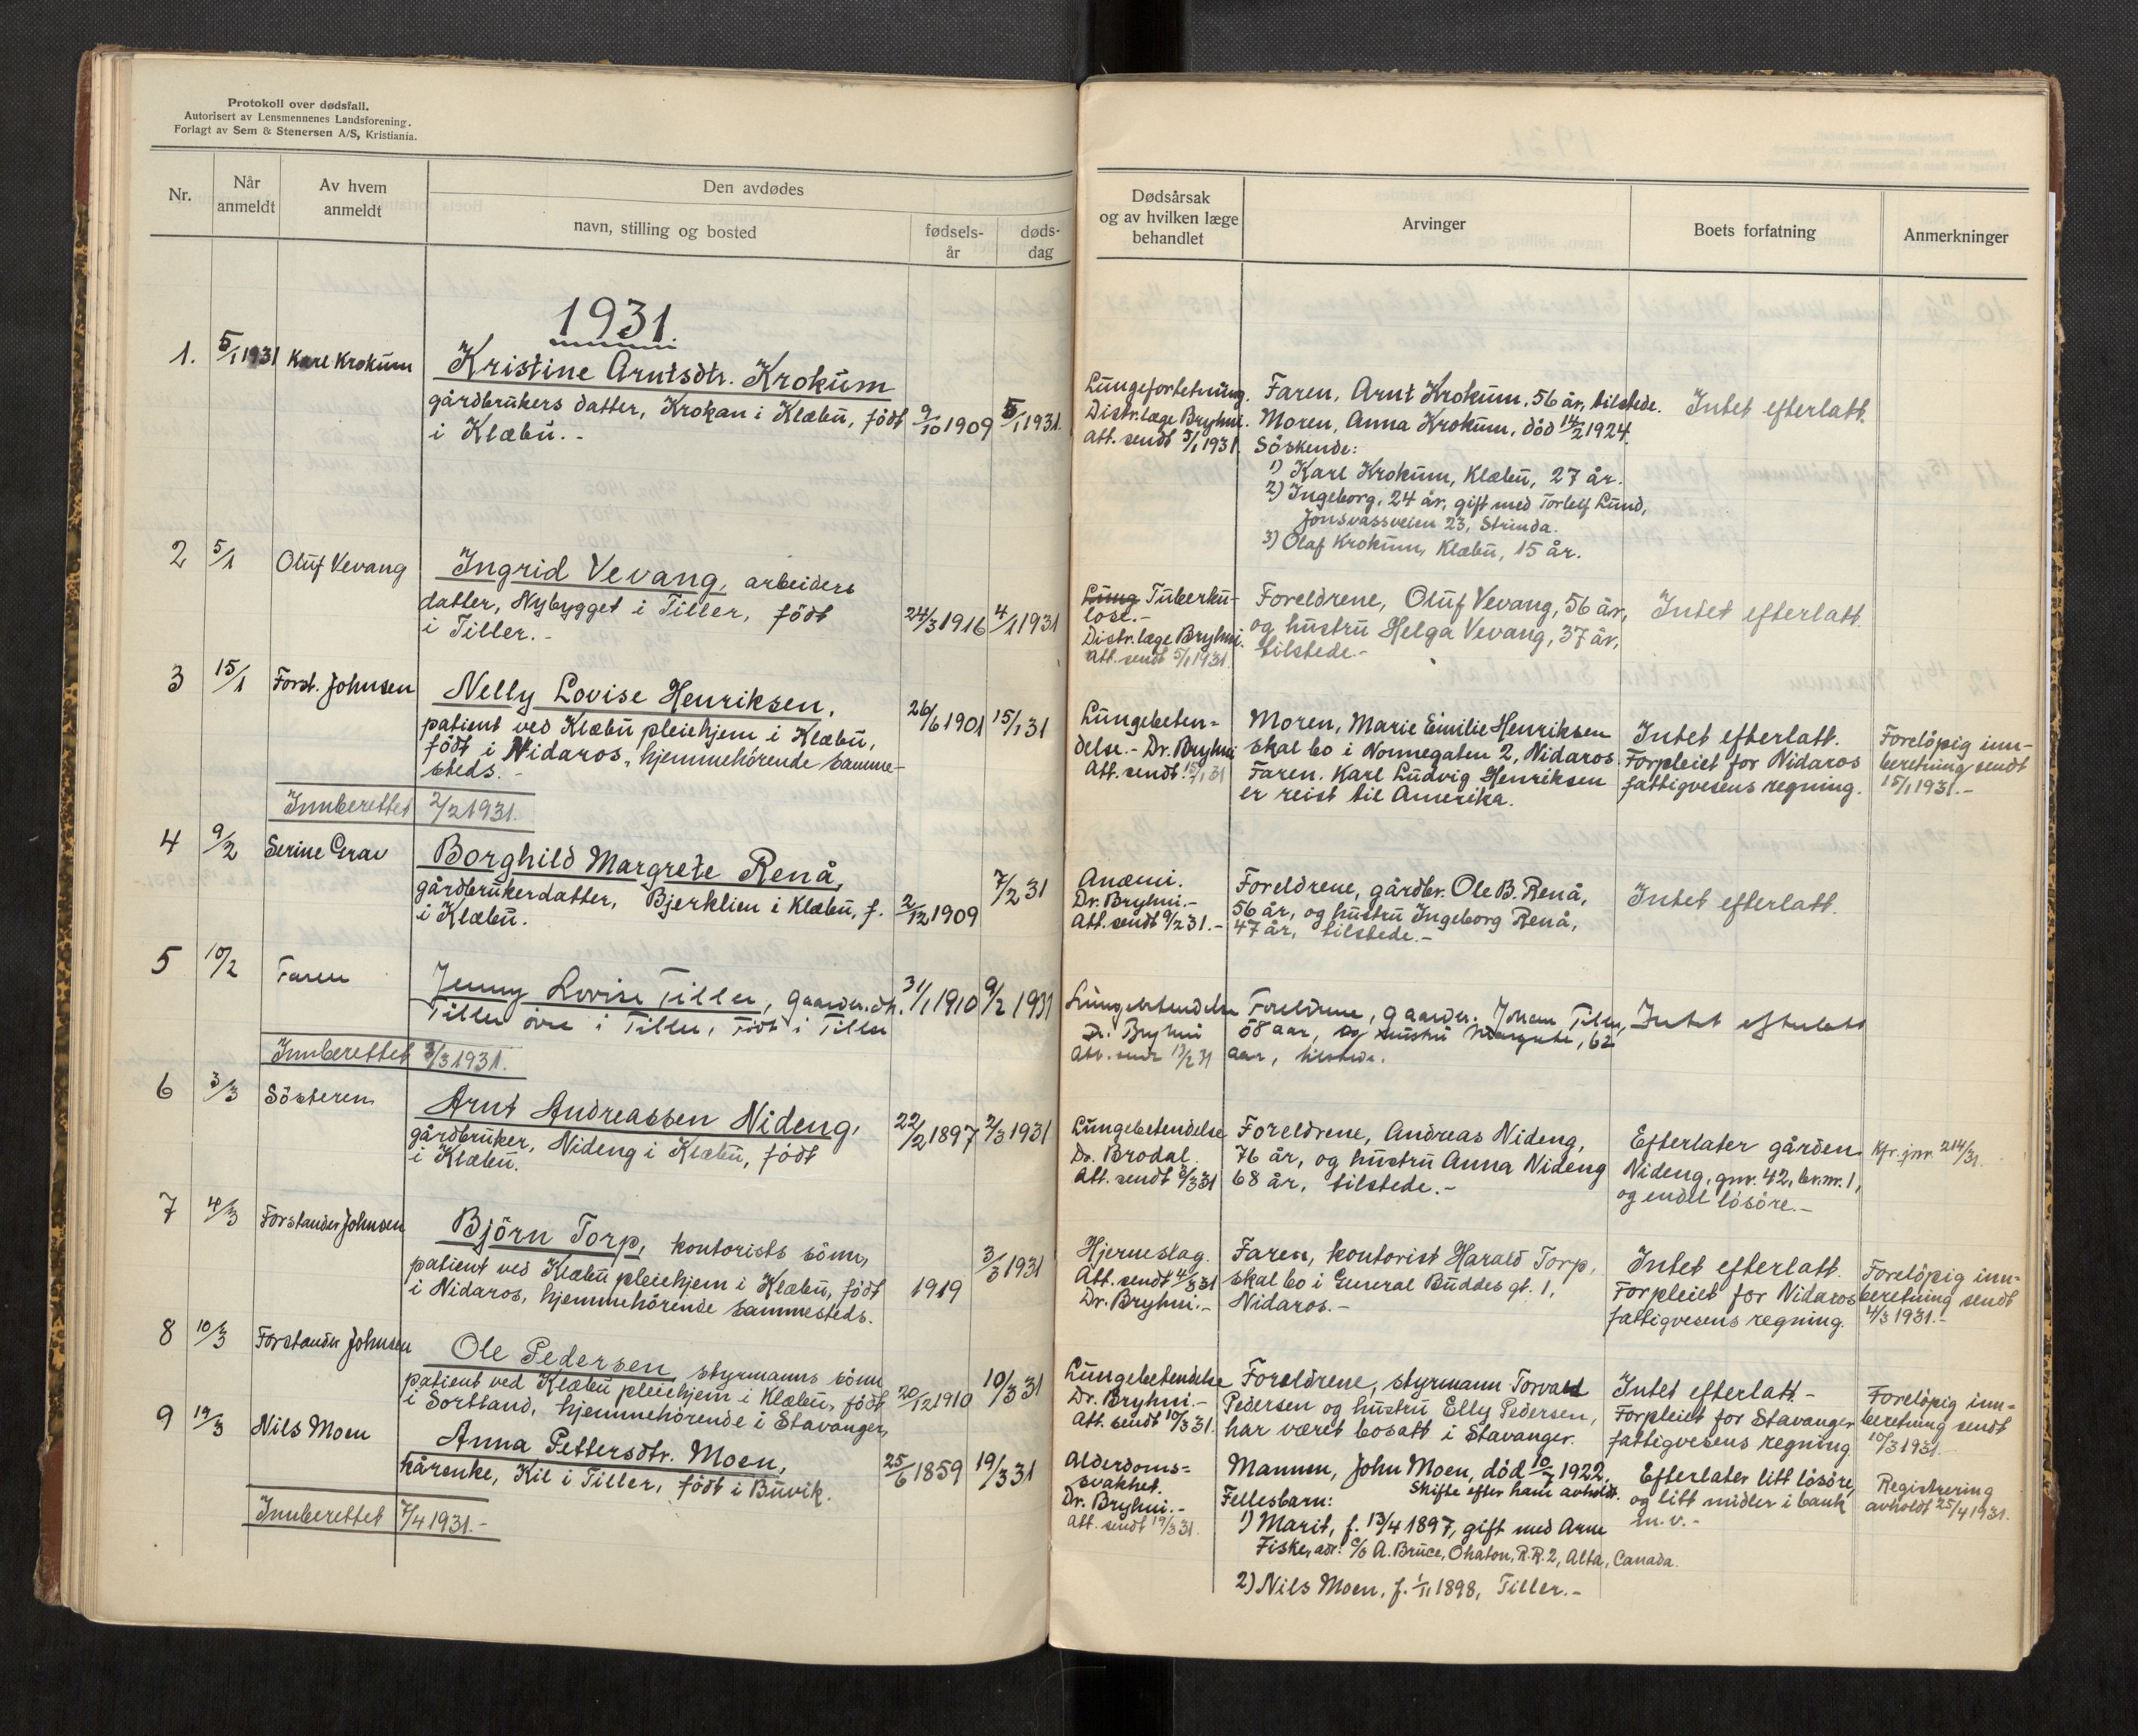 Protokoll over dødsfall.
Autorisert av Lensmennenes Landsforening.
Forlagt av Sem & Stenersen A/S, Kristiania.
Nr.
Når
anmeldt
Av hvem
anmeldt
Den avdødes
navn, stilling og bosted
fødsels-
år
døds-
dag
Dødsårsak
og av hvilken læge
behandlet
Arvinger
Boets forfatning
Anmerkninger
1931.
1.
5/1 1931
Karl Krokum
Kristine Arntsdtr. Krokum
gårdbrukers datter, Krokan i Klæbu, födt
i Klæbu. -
9/10 1909
5/1 1931.
Lungeforbetning.
Distr.læge Bryhni.
Att. sendt 5/1 1931.
Faren, Arnt Krokum, 56 år, tilstede.
Moren, Anna Krokum, död 14/2 1924.
Söskende:
1) Karl Krokum, Klæbu, 27 år.
2) Ingeborg, 24 år, gift med Torleif Lund,
Jonsvassveien 23, Strinda.
3) Olaf Krokum, Klæbu, 15 år.
Intet efterlatt.
2
5/1
Oluf Vevang
Ingrid Vevang, arbeiders
datter, Nybygget i Tiller, födt
i Tiller. -
24/3 1916
4/1 1931
Lung Tuberku-
lose. -
Distr.læge Bryhni.
Att. sendt 5/1 1931.
Foreldrene, Oluf Vevang, 56 år,
og hustru Helga Vevang, 37 år,
tilstede. -
Intet efterlatt.
3
15/1
Forst. Johnsen
Nelly Lovise Henriksen,
patient ved Klæbu pleiehjem i Klæbu,
födt i Nidaros, hjemmehörende samme-
steds. -
26/6 1901
15/1 31
Lungebeten=
delse. - Dr. Bryhni
Att. sendt 15/1 31
Moren, Marie Emilie Henriksen
skal bo i Nonnegaten 2, Nidaros.
Faren. Karl Ludvig Henriksen
er reist til Amerika.
Intet efterlatt.
Forpleiet for Nidaros
fattigvesens regning.
Forelöpig inn-
beretning sendt
15/1 1931. -
Innberettet 2/2 1931.
4
9/2
Serine Grav
Borghild Margrete Renå,
gårdbrukerdatter, Bjerklien i Klæbu, f.
i Klæbu.
2/12 1909
7/2 31
Anæmi.
Dr. Bryhni. -
Att. sendt 9/2 31. -
Foreldrene, gårdbr. Ole B. Renå,
56 år, og hustru Ingeborg Renå,
47 år, tilstede. -
Intet efterlatt.
5
10/2
Faren
Jenny Lovise Tiller, gaardbr. dtr.
Tiller övre i Tiller, födt i Tiller
31/1 1910
9/2 1931
Lungebetendelse
Dr. Bryhni
Att. sendt 13/2 31
Foreldrene, gaardbr. Johan Tiller,
58 aar, og hustru Margrete, 62
aar, tilstede.
Intet efterlatt
Innberettet 3/3 1931.
6
3/3
Sösteren
Arnt Andreassen Nideng,
gårdbruker, Nideng i Klæbu, födt
i Klæbu.
22/2 1897
2/3 1931
Lungebetendelse
Dr. Brodal.
Att. sendt 3/3 31
Foreldrene, Andreas Nideng,
76 år, og hustru Anna Nideng
68 år, tilstede. -
Efterlater gården
Nideng, gnr. 42, br.nr. 1,
og endel lösöre. -
Kfr. jnr. 214/31.
7
4/3
Forstander Johnsen
Björn Torp, kontorists sönn,
patient ved Klæbu pleiehjem i Klæbu, födt
i Nidaros, hjemmehörende sammesteds.
1919
3/3 1931
Hjerneslag.
Att. sendt 4/3 31
Dr. Bryhni. -
Faren, kontorist Harald Torp,
skal bo i General Buddes gt. 1,
Nidaros. -
Intet efterlatt.
Forpleiet for Nidaros
fattigvesens regning.
Forelöpig inn-
beretning sendt
4/3 1931. -
8
10/3
Forstander Johnsen
Ole Pedersen, styrmanns sönn
patient ved Klæbu pleiehjem i Klæbu, födt
i Sortland, hjemmehörende i Stavanger,
20/12 1910
10/3 31
Lungebetendelse
Dr. Bryhni. -
Att. sendt 10/3 31.
Foreldrene, styrmann Torvald
Pedersen og hustru Elly Pedersen,
har været bosatt i Stavanger.
Intet efterlatt -
Forpleiet for Stavanger
fattigvesens regning
Forelöpig inn-
beretning sendt
10/3 1931. -
9
19/3
Nils Moen
Anna Pettersdtr. Moen,
kårenke, Kil i Tiller, födt i Buvik.
25/6 1859
19/3 31
Alderdoms=
svakhet.
Dr. Bryhni. -
Att. sendt 19/3 31.
Mannen, John Moen, död 10/7 1922.
Skifte efter ham avholdt.
Fellesbarn:
1) Marit, f. 13/4 1897, gift med Arne
Fiske, adr: c/o A. Bruce, Ohaton, R.R. 2, Alta, Canada.
2) Nils Moen, f. 1/11 1898, Tiller. -
Efterlater litt lösöre,
og litt midler i bank
m. v. -
Registrering
avholdt 25/4 1931.
Innberettet 7/4 1931. -